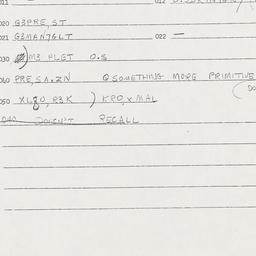 012
020 G3PRE, ST
021 G3MAN7GLT 022 —
030 M3 PLGT O.S
040 PRE, SA, ZN Q SOMETHING MORE PRIMITIVE
050 XL80, P3K ) KPO, X MAL
DOESN'T RECALL